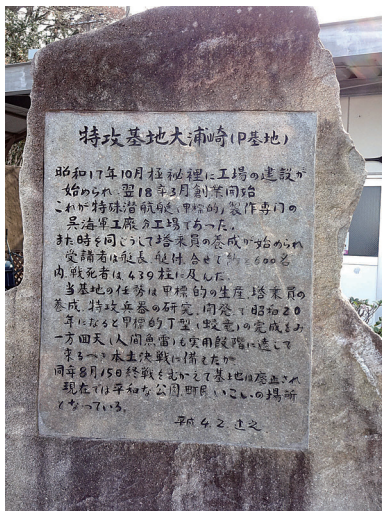 特攻基地大浦崎(P基地)
昭和17年10月極秘裡に工場の建設が
始められ翌18年3月創業開始
これが特殊潜航艇(甲標的)製作専門の
呉海軍工廠分工場であった。
また時を同じうして搭乗員の養成が始められ
受講者は艇長艇付合せて約2600名
内、戦死者は439柱に及んだ。
当基地の任務は甲標的の生産、搭乗員の
養成、特攻兵器の研究、開発で昭和20
年になると甲標的丁型(蛟竜)の完成をみ
一方回天(人間魚雷)も実用段階に達して
来るべき本土決戦に備えたが
同年8月15日終戦をむかえて基地は廃止され
現在では平和な公園町民いこいの場所
となっている。
平成4.2.